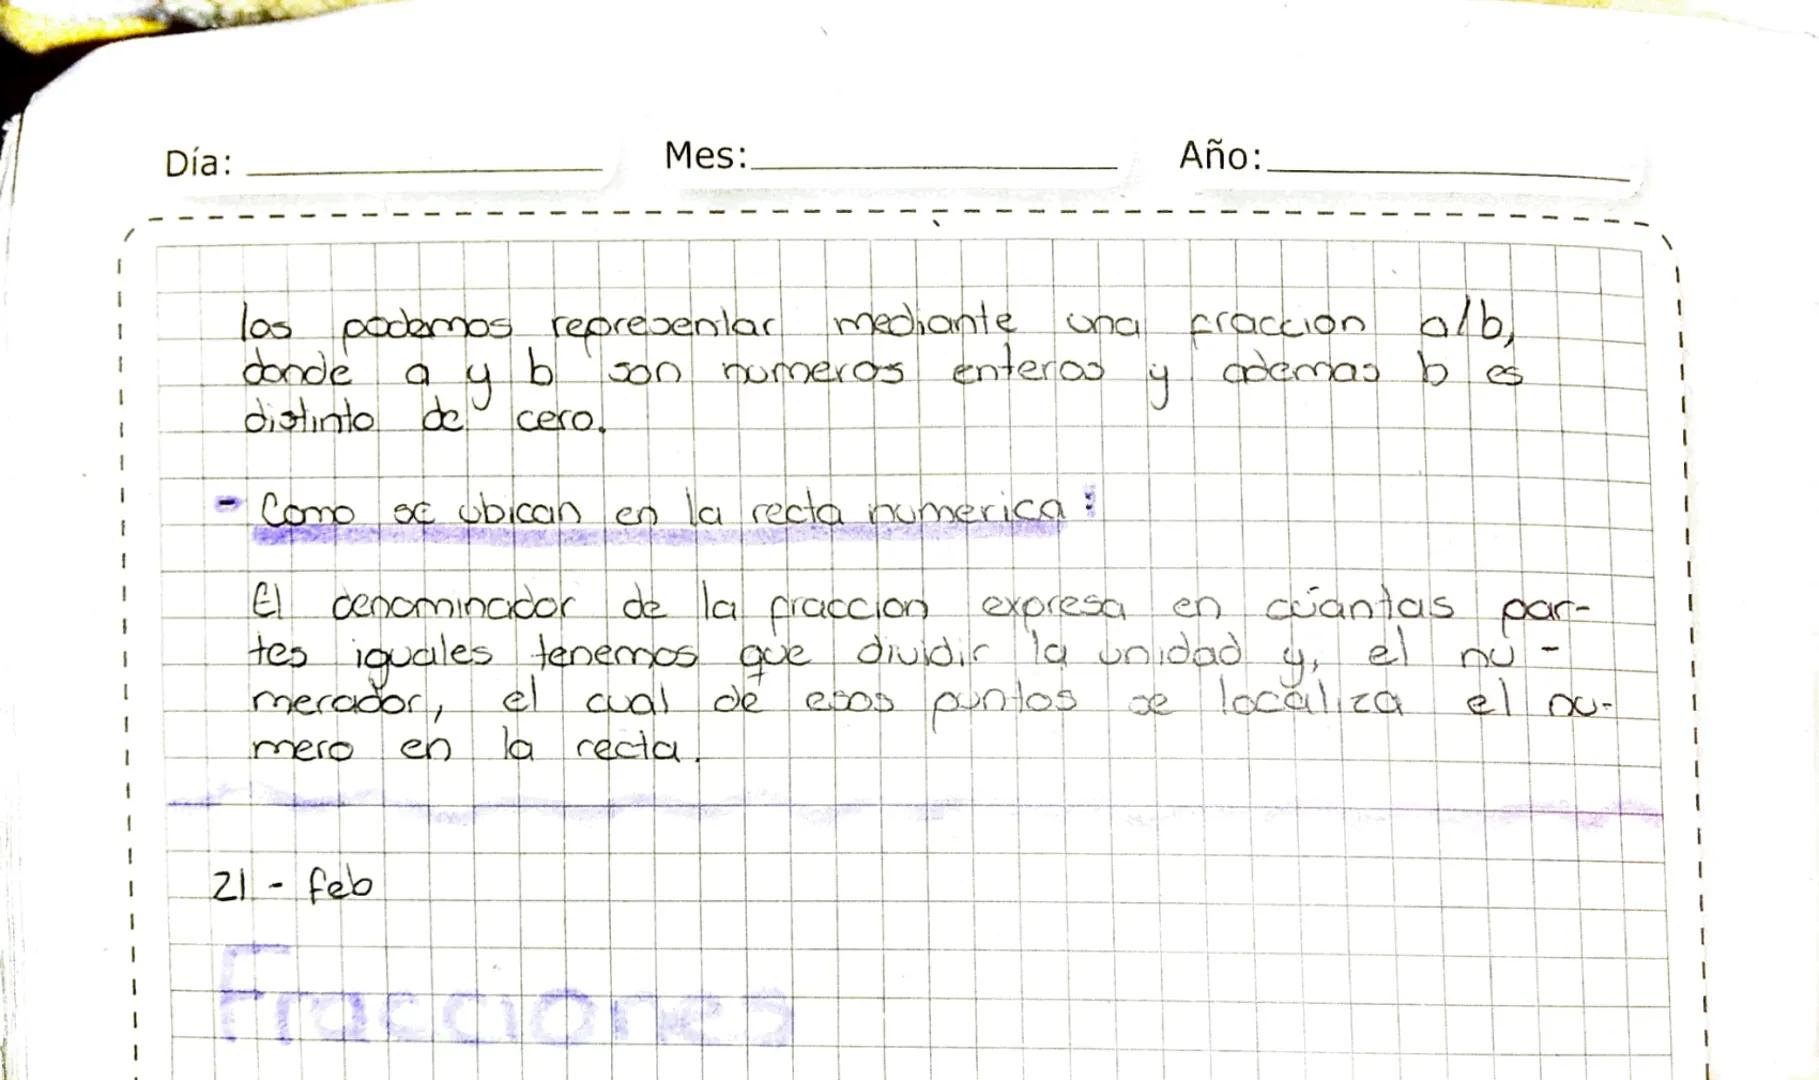 Día: Mes: Año:
los podemos representar mediante una fraccion a/b,
donde a y b son numeros enteros y ademas b es
distinto de cero.
- Como se ubican en la recta numerica :
El denominador de la fraccion expresa en cuantas par-
tes iguales tenemos que dividir la unidad y, el nu-
merador, el cual de esos puntos se localiza el nu-
mero en la recta.
21 - feb
Fracciones